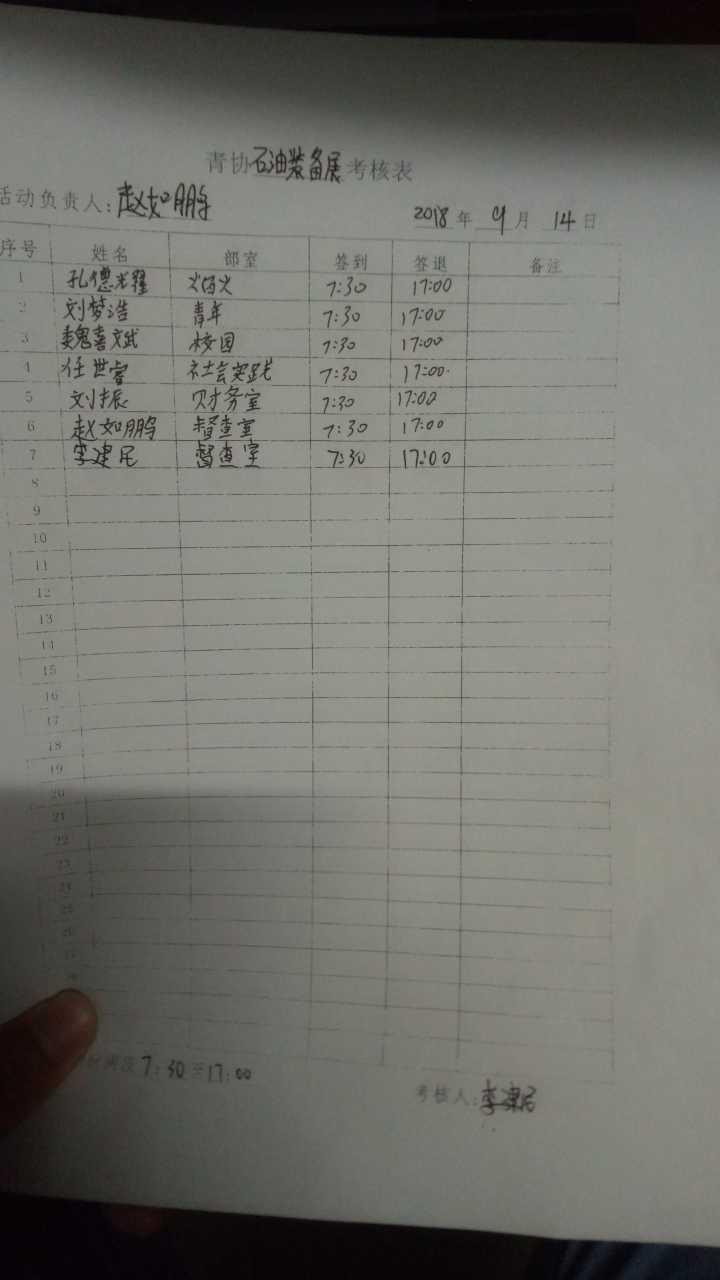 青协石油装备展考核表
活动负责人:赵如鹏 2018年9月14日
序号 姓名 部室 签到 签退 备注
1 孔德光耀 烟火 7:30 17:00
2 刘梦浩 青年 7:30 17:00
3 魏喜斌 校园 7:30 17:00
4 任世睿 社会实践 7:30 17:00
5 刘振 财务室 7:30 17:00
6 赵如鹏 督查室 7:30 17:00
7 李建民 督查室 7:30 17:00
8
9
10
11
12
13
14
15
16
17
18
19
20
21
22
23
24
25
26
时间段7:30至17:00
考核人:李建民